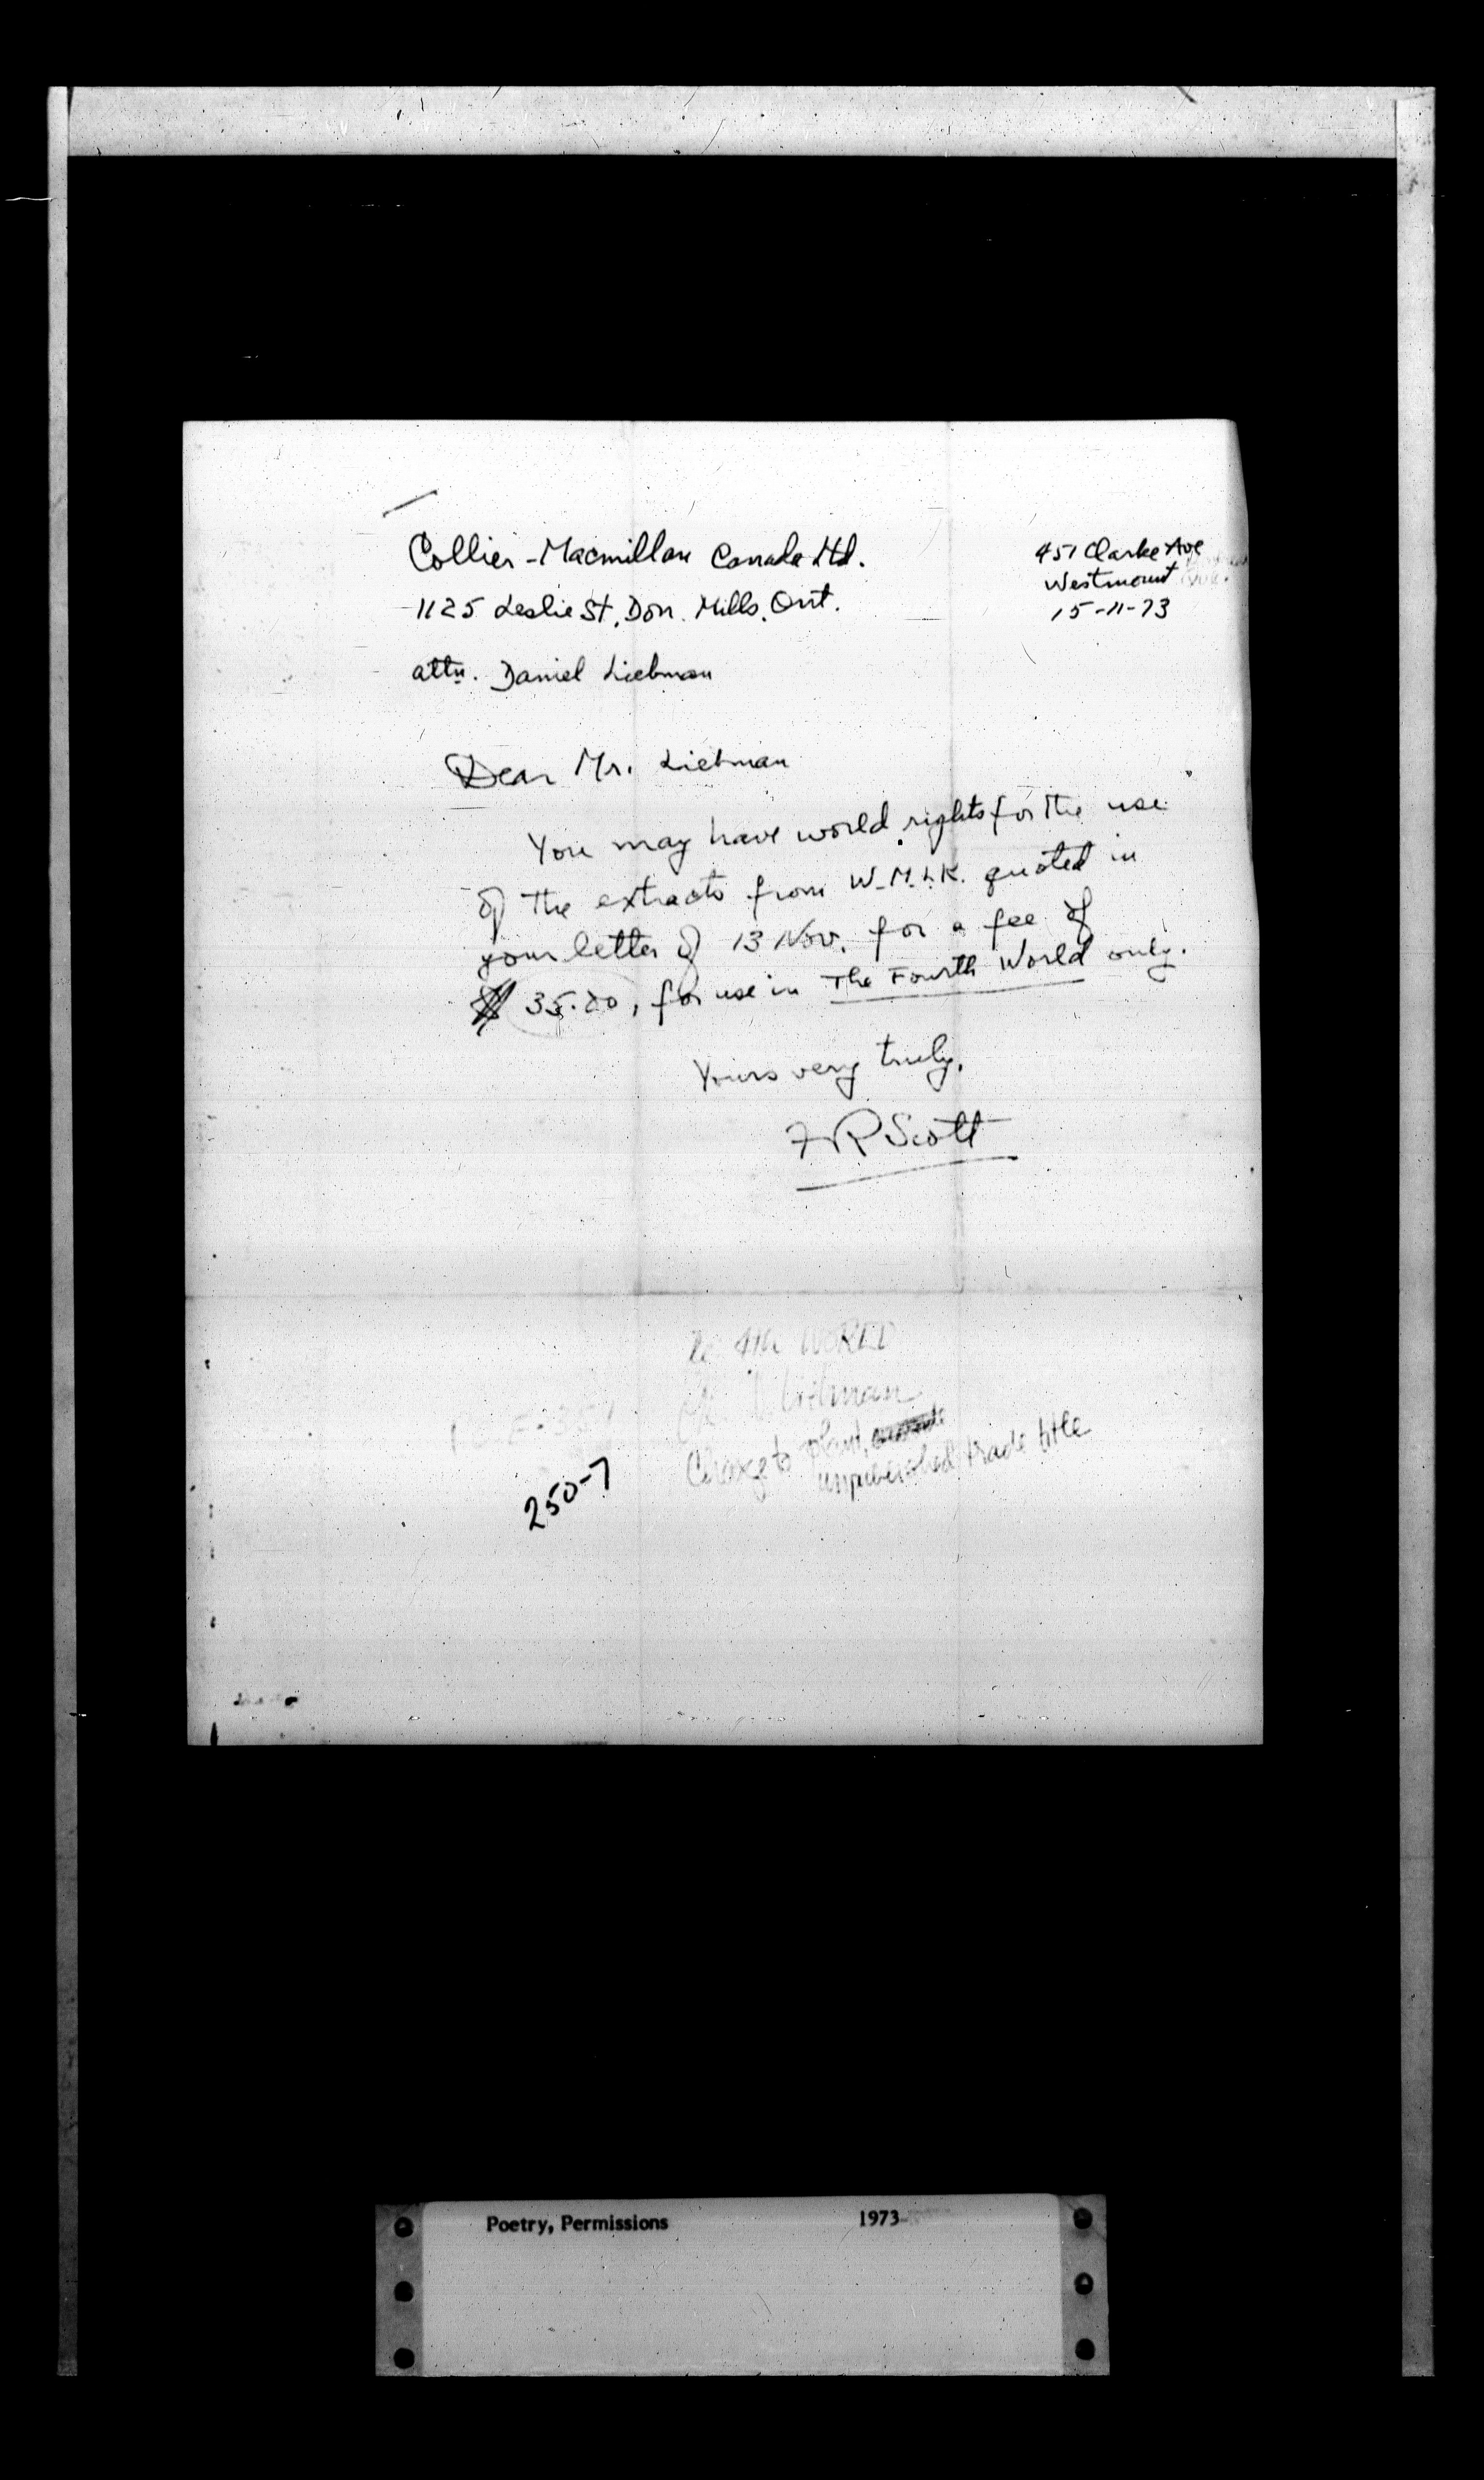 Collier-Macmillan Canada Ltd.
1125 Leslie St, Don Mills, Ont.
451 Clarke Ave
Westmount
15-11-73
attn. Daniel Liebman
Dear Mr. Liebman
You may have world rights for the use
of the extracts from W.M.L.K. quoted in
your letter of 13 Nov. for a fee of
$35.00, for use in The Fourth World only.
Yours very truly,
F R Scott
4th WORLD
Liebman
Charge to plant,
unpublished trade title
250-7
Poetry, Permissions 1973